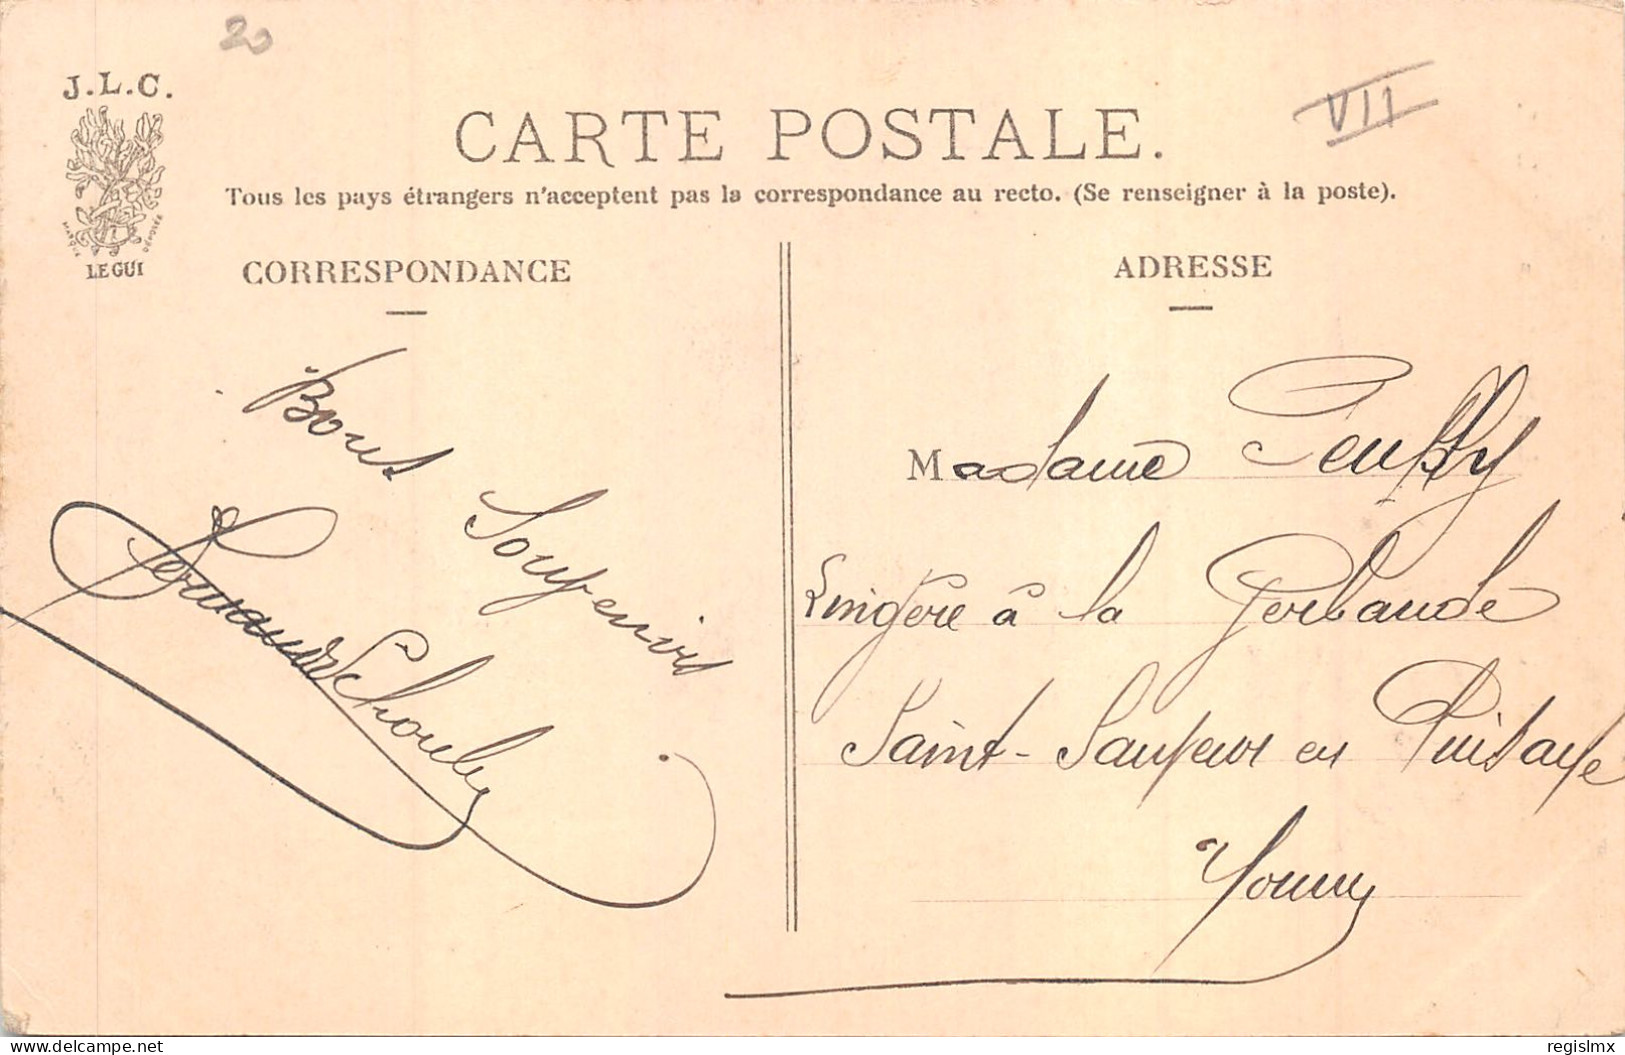 20
VII
J.L.C.
MARQUE DÉPOSÉE
LE GUI
CARTE POSTALE.
Tous les pays étrangers n'acceptent pas la correspondance au recto. (Se renseigner à la poste).
CORRESPONDANCE
Bons
Souvenirs
ADRESSE
Madame
Lingère à la Gerbaude
Saint-Sauveur en Puisaye
Yonne
delcampe.net
regislmx